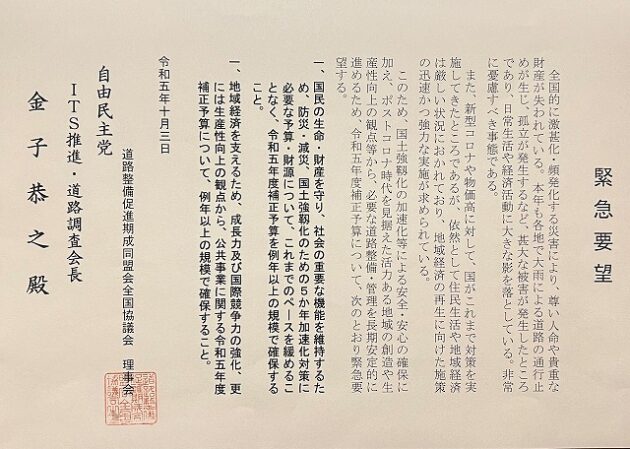 緊急要望
全国的に激甚化・頻発化する災害により、尊い人命や貴重な
財産が失われている。本年も各地で大雨による道路の通行止
めが生じ、孤立が発生するなど、甚大な被害が発生したところ
であり、日常生活や経済活動に大きな影を落としている。非常
に憂慮すべき事態である。
また、新型コロナや物価高に対して、国がこれまで対策を実
施してきたところであるが、依然として住民生活や地域経済
は厳しい状況におかれており、地域経済の再生に向けた施策
の迅速かつ強力な実施が求められている。
このため、国土強靱化の加速化等による安全・安心の確保に
加え、ポストコロナ時代を見据えた活力ある地域の創造や生
産性向上の観点等から、必要な道路整備・管理を長期安定的に
進めるため、令和五年度補正予算について、次のとおり緊急要
望する。
一、国民の生命・財産を守り、社会の重要な機能を維持するた
め、防災・減災、国土強靱化のための5か年加速化対策に
必要な予算・財源について、これまでのペースを緩めるこ
となく、令和五年度補正予算を例年以上の規模で確保する
こと。
一、地域経済を支えるため、成長力及び国際競争力の強化、更
には生産性向上の観点から、公共事業に関する令和五年度
補正予算について、例年以上の規模で確保すること。
令和五年十月三日
道路整備促進期成同盟会全国協議会　理事会
自由民主党
ITS推進・道路調査会長
金子恭之殿